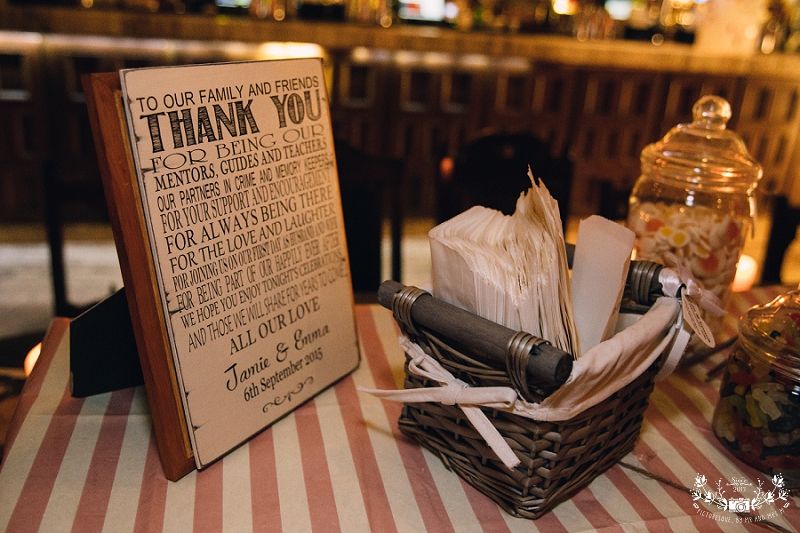 TO OUR FAMILY AND FRIENDS
THANK YOU
FOR BEING OUR
MENTORS, GUIDES AND TEACHERS
OUR PARTNERS IN CRIME AND MEMORY KEEPERS
FOR YOUR SUPPORT AND ENCOURAGEMENT
FOR ALWAYS BEING THERE
FOR THE LOVE AND LAUGHTER
FOR JOINING US ON OUR FIRST DAY AS HUSBAND AND WIFE
FOR BEING PART OF OUR HAPPILY EVER AFTER
WE HOPE YOU ENJOY TONIGHT'S CELEBRATIONS
AND THOSE WE WILL SHARE FOR YEARS TO COME
ALL OUR LOVE
Jamie & Emma
6th September 2015
2017
PICTURESQUE, BY ME AND MRS M